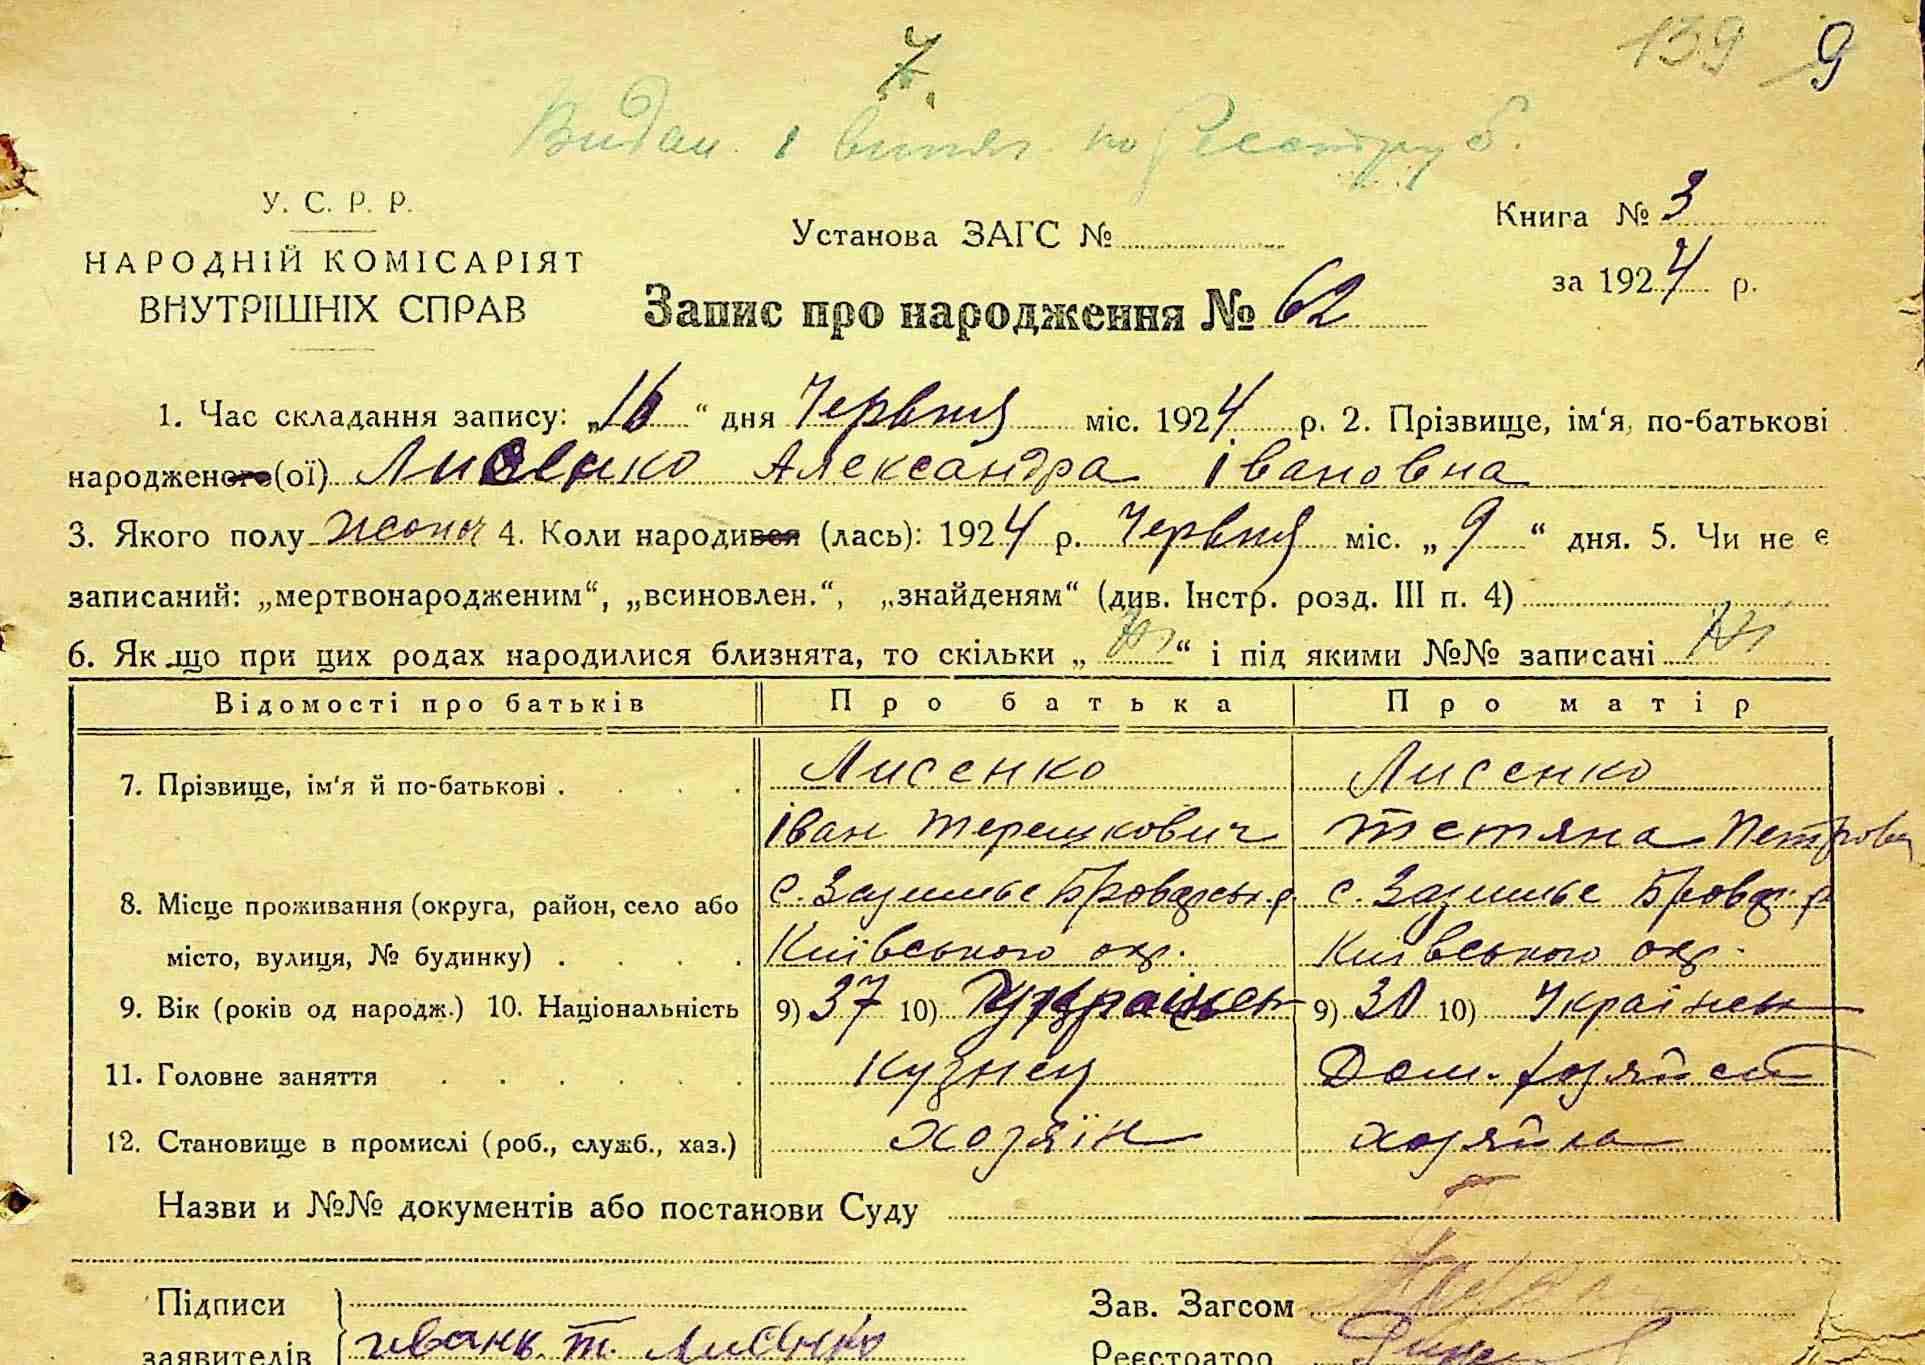 139 9
7.
Видан 1 витяг. по Реєстру б.
У. С. Р. Р.
НАРОДНІЙ КОМІСАРІЯТ
ВНУТРІШНІХ СПРАВ
Установа ЗАГС №
Книга № 3
за 1924 р.
Запис про народження № 62
1. Час складання запису: „16“ дня Червня міс. 1924 р. 2. Прізвище, ім‘я, по-батькові
народженого(ої) Лисенко Александра Івановна
3. Якого полу жоноч 4. Коли народився (лась): 1924 р. Червня міс. „9“ дня. 5. Чи не є
записаний: „мертвонародженим“, „всиновлен.“, „знайденям“ (див. Інстр. розд. III п. 4)
6. Як що при цих родах народилися близнята, то скільки „ “ і під якими №№ записані
Відомості про батьків Про батька Про матір
7. Прізвище, ім‘я й по-батькові . . . . Лисенко Лисенко
Іван Терешкович Тетяна Петровн
8. Місце проживання (округа, район, село або с. Зазимьє Броварськ. р. с. Зазимьє Бровар. р
місто, вулиця, № будинку) . . . . Київського окр. Київського окр.
9. Вік (років од народж.) 10. Національність 9) 37 10) Українец 9) 30 10) Українка
11. Головне заняття . . . . . . Кузнец Дом. хозяйст
12. Становище в промислі (роб., служб., хаз.) хозяїн хозяйка
Назви и №№ документів або постанови Суду
Підписи
заявителів Иванъ Т. Лисенко
Зав. Загсом
Реєстратор